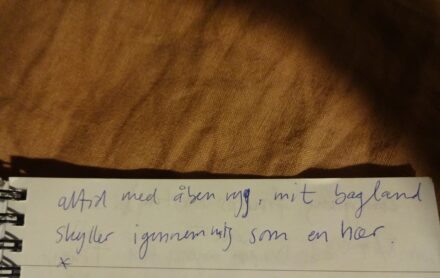 altid med åben ryg, mit bagland
skyller igennem mig som en hær.
*